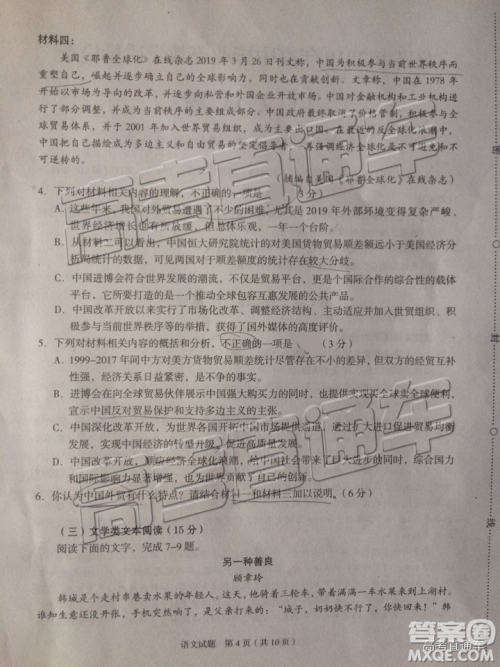 材料四：
美国《耶鲁全球化》在线杂志2019年3月26日刊文称，中国为积极参与当前世界秩序而
重塑自己，崛起并逐步确立自己的全球影响力，同时也在贡献创新。文章称，中国在1978年
开始以市场为导向的改革，并逐步向私营和外国企业开放市场。中国对金融机构和工业机构进
行了部分调整，并成为当前秩序的主要组成部分。中国政府最终取消了价格管制，参与了全
球贸易体系，并于2001年加入世界贸易组织，成为出口大国。在最近的反全球化浪潮中，中
国把自己描绘成为多边主义和自由贸易的坚定倡导者，并强调经济全球化是不可避免和不
可逆转的。
（摘编自美国《耶鲁全球化》在线杂志）
4．下列对材料相关内容的理解，不正确的一项是（3分）
A．这些年来，我国对外贸易遭遇了不少的困难，尤其是2019年外部环境变得复杂严峻、
世界经济增长也有所放缓，的确是难以让人乐观，一年一个台阶。
B．从材料二可以看出，中国恒大研究院统计的对美国货物贸易顺差额远小于美国经济分
析局统计的数据，可见两国对于顺差额度的统计存在较大分歧。
C．中国进博会符合世界发展的潮流，不仅是贸易平台，更是个国际合作的综合性的载体
平台，它所要打造的是一个推动全球包容互惠发展的国际公共平台。
D．中国改革开放以来实行了市场化改革、调整经济结构、主动适应并加入世贸组织、积
极参与当前世界秩序等的举措，获得了国外媒体的高度评价。
5．下列对材料相关内容的概括和分析，不正确的一项是（3分）
A．1999-2017年间中方对美方货物贸易顺差额统计尽管存在不小的差异，但双方的经贸互补
性强，经济关系日益紧密，这是不争的事实。
B．进博会在向世界展示中国强大购买力的同时，也提供了全球买卖全球的机会，鲜明
显示中国反对贸易保护和支持多边贸易的主张。
C．中国深化改革开放，为世界各国开拓中国市场提供通道，通过扩大进口促进贸易更趋
平衡，来实现中国经济的转型升级，促进供求平衡。
D．中国改革开放，顺应经济全球化潮流，给中国社会带来了巨大进步，中国的全球影响力
和国际影响力显著增强也是其必然结果。
6．你认为中国外贸有什么特点？请结合材料一和材料二加以说明。（6分）
（三）文学类文本阅读（15分）
阅读下面的文字，完成7~9题。
另一种善良
顾章玲
韩城是个走村串巷卖水果的年轻人。这天，他骑着三轮车，带着满满一车水果来到上湖村。
谁知生意还没开张，手机突然响了，是父亲打来的：“城子，奶奶快不行了，你快回来！”韩
语文试题 第4页（共10页）
封
线
高考直通车
答案圈
MXQE.COM